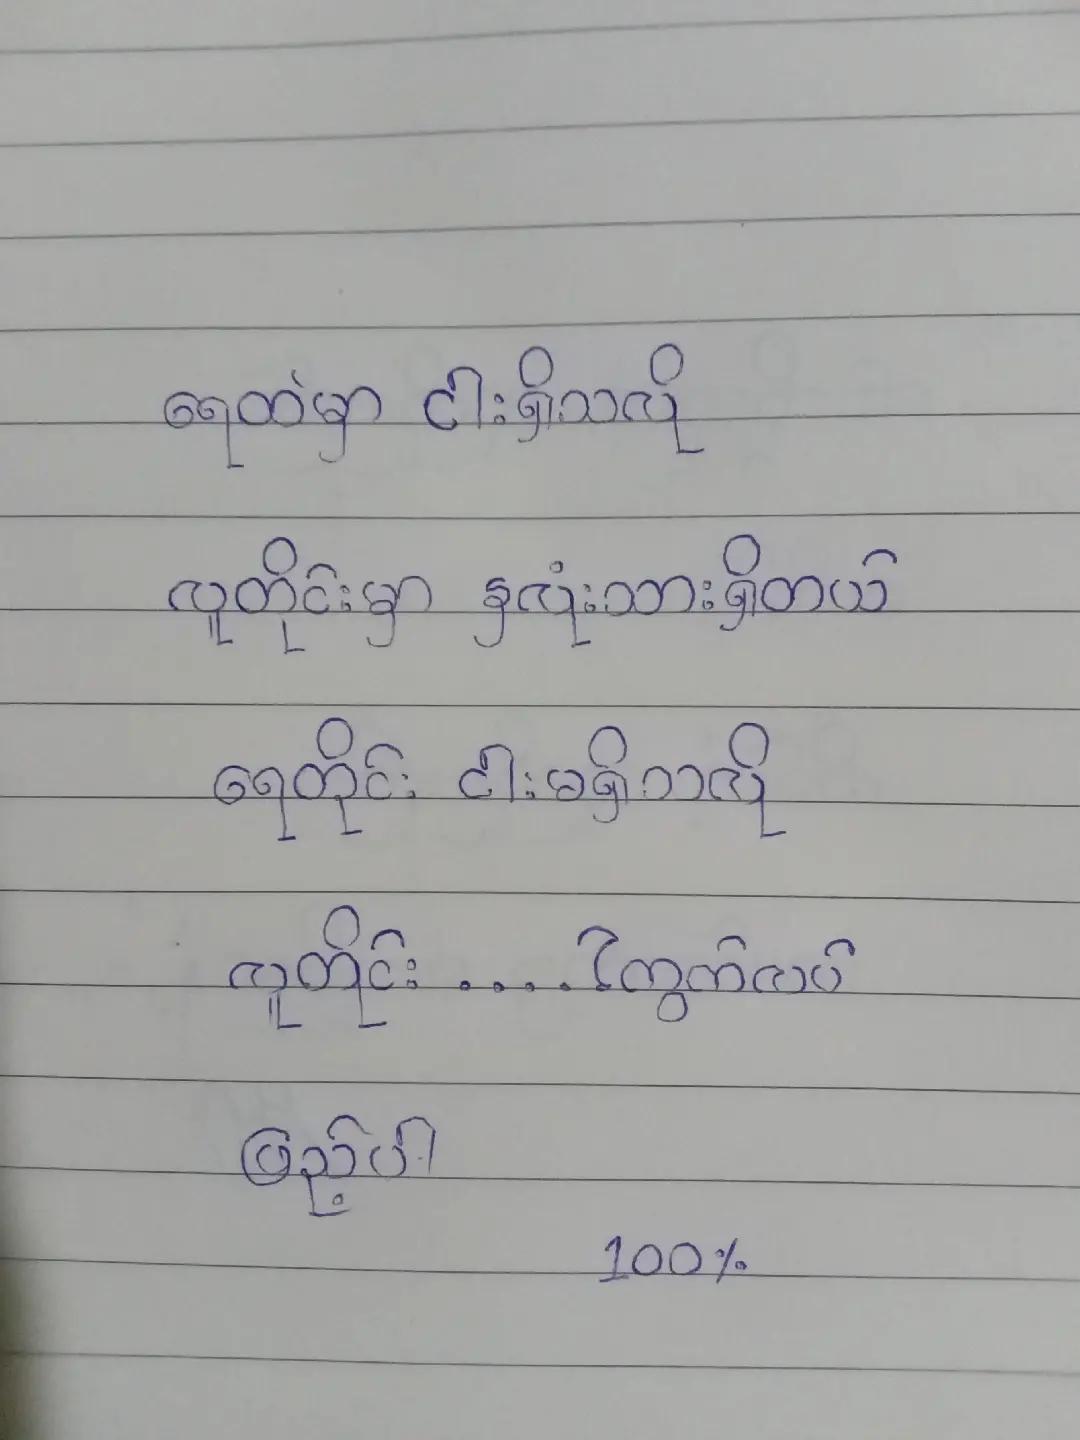 ရေထဲမှာ ငါးရှိသလို
လူတိုင်းမှာ နှလုံးသားရှိတယ်
ရေတိုင်း ငါးမရှိသလို
လူတိုင်း . . . . ဒီကွက်လပ်
ဖြည့်ပါ
100%